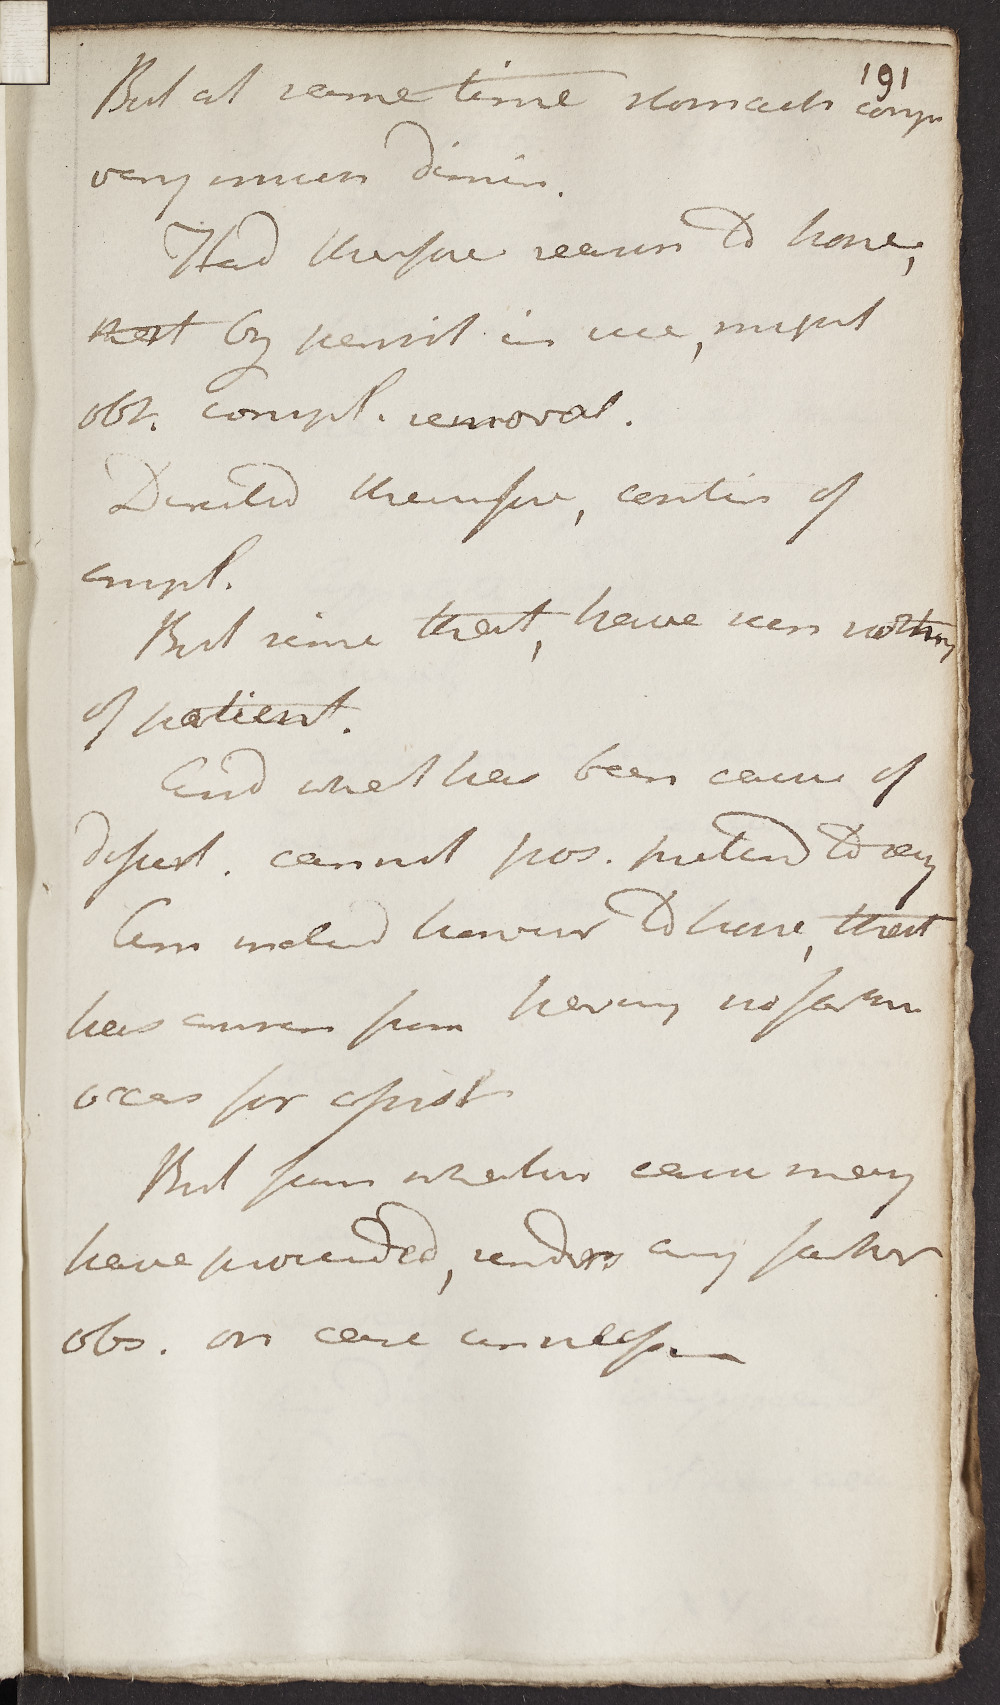 191
But at same time stomach comp
very much dimin.
Had therefore reason to hope,
that by persist in use, might
obt. compl. removal.
Directed therefore, contin of
empl.
But since that, have seen nothing
of patient.
And what has been cause of
desert. cannot pos. pretend to say
Am inclined however to hope, that
has arisen from having no farther
occas for assist
But from whatever cause may
have proceeded, renders any farther
obs. on case unness.